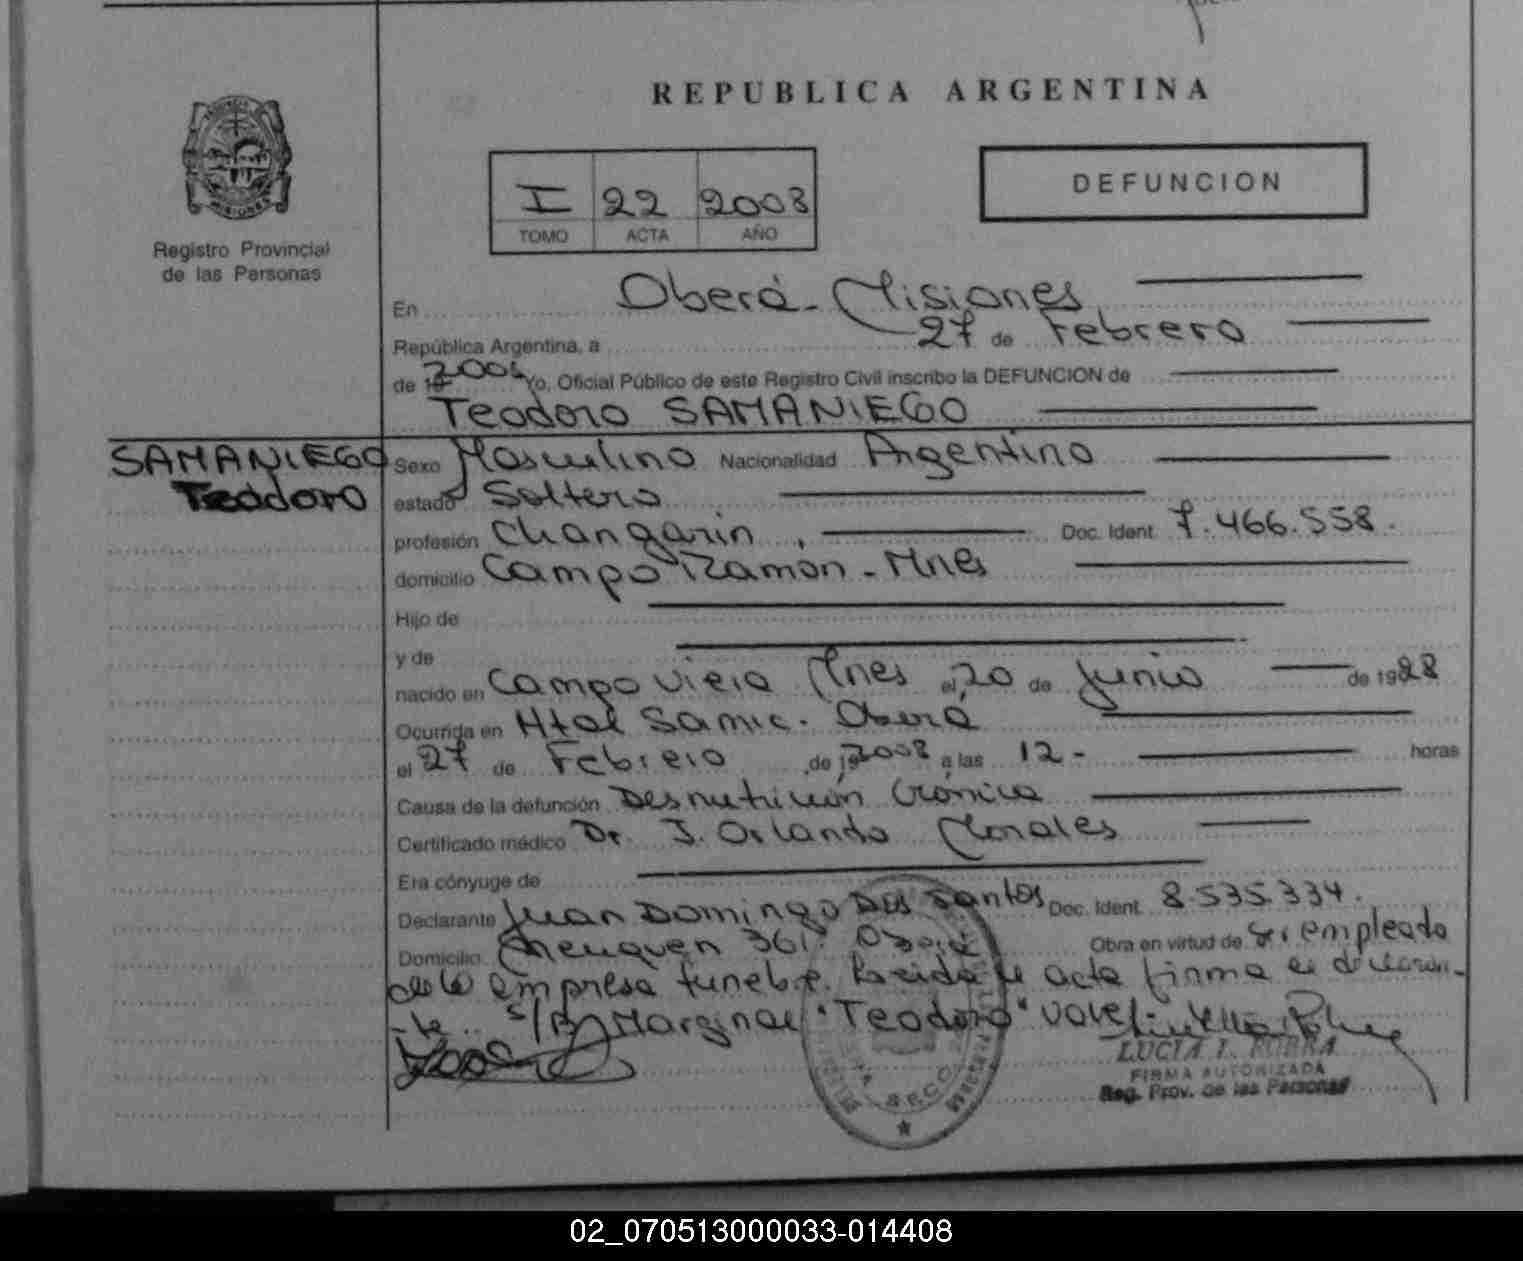 REPUBLICA ARGENTINA
Registro Provincial
de las Personas
I 22 2008
TOMO ACTA AÑO
DEFUNCION
En Oberá - Misiones
República Argentina, a 27 de Febrero
de 19 2008 Yo, Oficial Público de este Registro Civil inscribo la DEFUNCION de
Teodoro SAMANIEGO
SAMANIEGO
Teodoro
Sexo Masculino Nacionalidad Argentino
estado Soltero
profesión Changarin, Doc. Ident. 7.466.558.
domicilio Campo Ramon - Mnes
Hijo de
y de
nacido en Campo Viera Mnes el 20 de Junio de 1928
Ocurrida en Htal Samic. Oberá
el 27 de Febrero de 19 2008 a las 12 - horas
Causa de la defunción Desnutrición Crónica
Certificado médico Dr. J. Orlando Morales
Era cónyuge de
Declarante Juan Domingo Dos Santos Doc. Ident. 8.535.334.
Domicilio Neuquen 361. Oberá Obra en virtud de ser empleado
de la empresa funebre. Leida el acta firma el declaran-
-te. S/R Marginal "Teodoro" Vale.
LUCIA I.
FIRMA AUTORIZADA
Reg. Prov. de las Personas
02_070513000033-014408